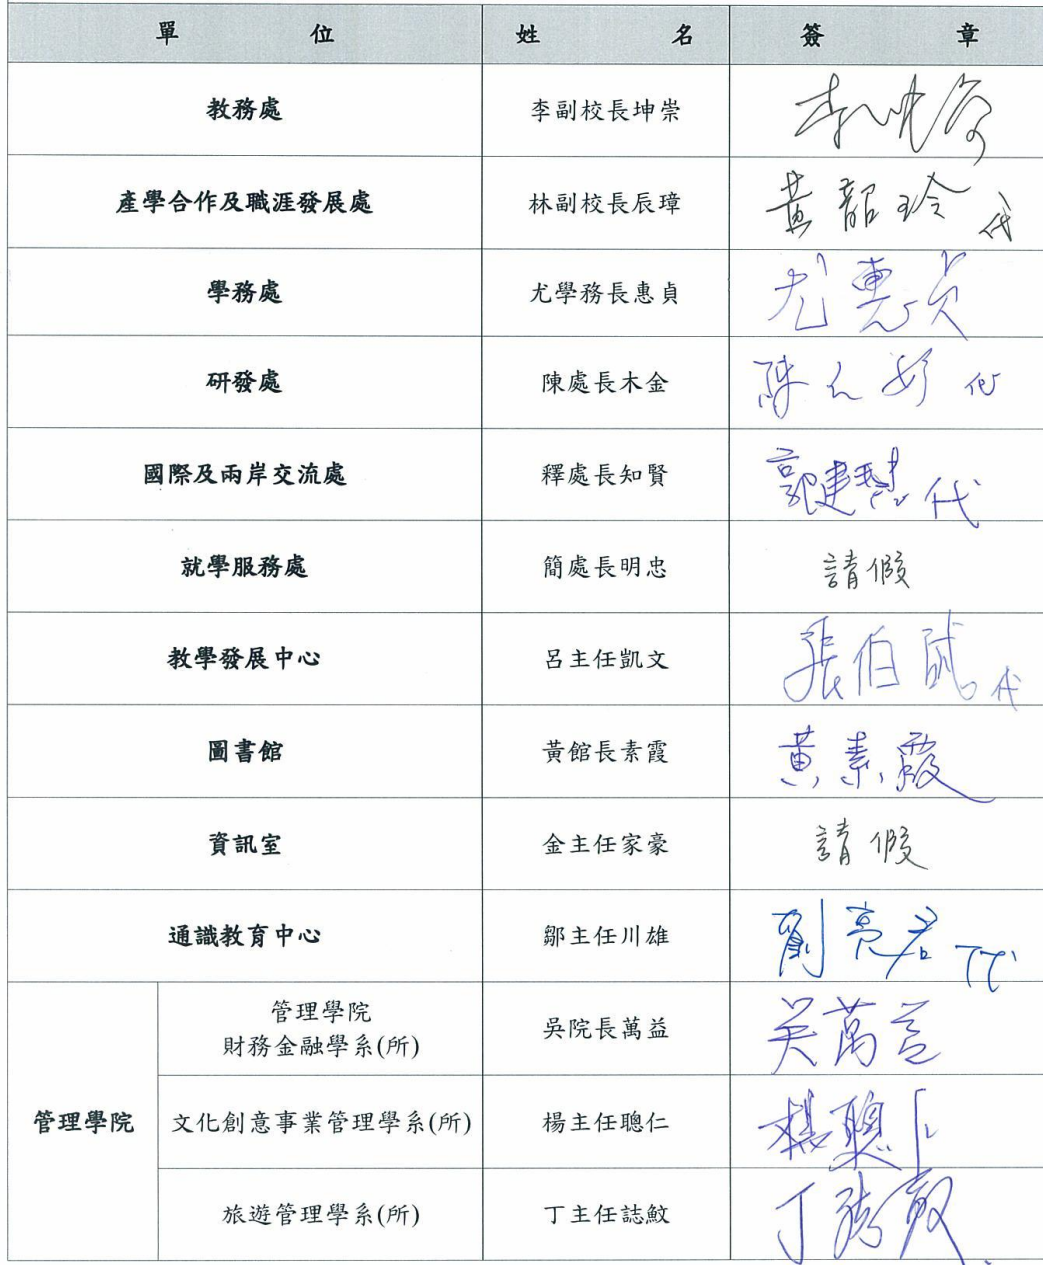 單位 姓名 簽章
教務處 李副校長坤崇 李坤崇
產學合作及職涯發展處 林副校長辰璋 黃韶玲 代
學務處 尤學務長惠貞 尤惠貞
研發處 陳處長木金 代
國際及兩岸交流處 釋處長知賢 代
就學服務處 簡處長明忠 請假
教學發展中心 呂主任凱文 代
圖書館 黃館長素霞 黃素霞
資訊室 金主任家豪 請假
通識教育中心 鄒主任川雄 代
管理學院
財務金融學系(所) 吳院長萬益 吳萬益
管理學院 文化創意事業管理學系(所) 楊主任聰仁 楊聰仁
旅遊管理學系(所) 丁主任誌魰 丁誌魰